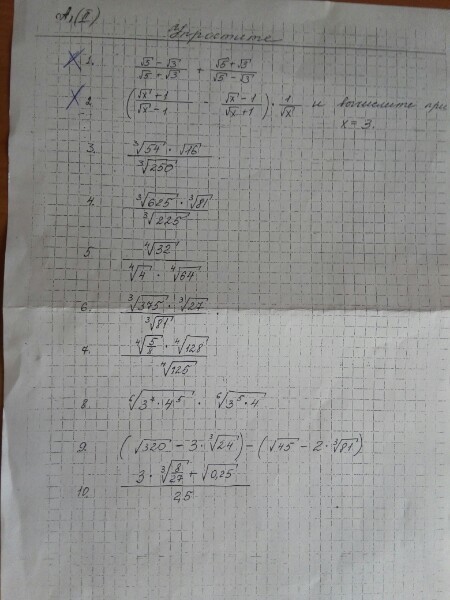 A₁(II)
Упростите
1. (√5 - √3)/(√5 + √3) + (√5 + √3)/(√5 - √3)
2. ((√x + 1)/(√x - 1) - (√x - 1)/(√x + 1)) · 1/√x и вычислите при
x = 3.
3. (∛54 · √16)/∛250
4. (∛625 · ∛81)/∛225
5 -⁴√32/(⁴√4 · ⁴√64)
6. (∛375 · ∛27)/∛81
7. (⁴√(5/8) · ⁴√128)/⁴√125
8. ⁶√(3⁴ · 4⁵) · ⁶√(3⁵ · 4)
9 (√320 - 3 · ∛24) - (√45 - 2 · ∛81)
10. (3 · ∛(8/27) + √0,25)/2,5